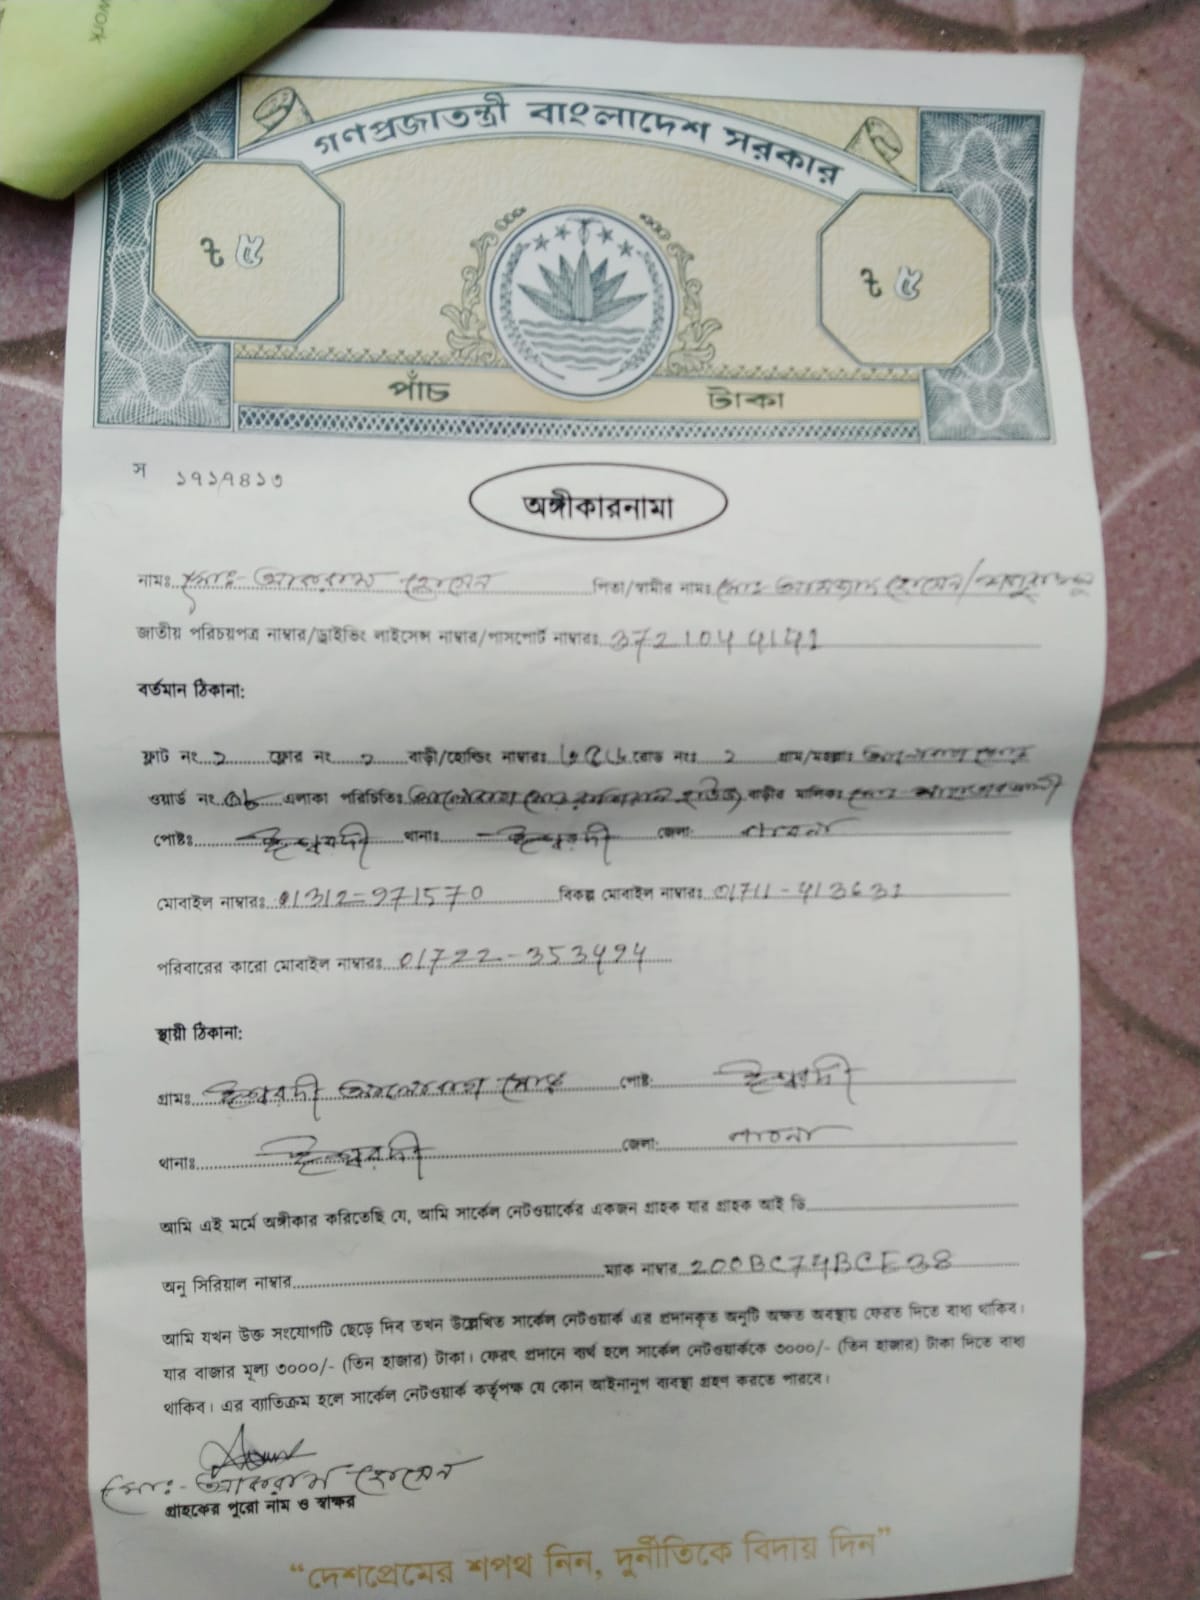 work
গণপ্রজাতন্ত্রী বাংলাদেশ সরকার
৳ ৫ ৳ ৫
পাঁচ টাকা
স ১৭১৭৪১৩
অঙ্গীকারনামা
নামঃ মোঃ- আকরাম হোসেন পিতা/স্বামীর নামঃ মোঃ আমজাদ হোসেন/
জাতীয় পরিচয়পত্র নাম্বার/ড্রাইভিং লাইসেন্স নাম্বার/পাসপোর্ট নাম্বারঃ
বর্তমান ঠিকানা:
ফ্লাট নং ফ্লোর নং বাড়ী/হোল্ডিং নাম্বারঃ রোড নংঃ গ্রাম/মহল্লাঃ
ওয়ার্ড নং এলাকা পরিচিতিঃ বাড়ীর মালিকঃ
পোষ্টঃ ঈশ্বরদী থানাঃ ঈশ্বরদী জেলা: পাবনা
মোবাইল নাম্বারঃ 01312-971570 বিকল্প মোবাইল নাম্বারঃ 01711-413631
পরিবারের কারো মোবাইল নাম্বারঃ 01722-353494
স্থায়ী ঠিকানা:
গ্রামঃ ঈশ্বরদী পোষ্ট: ঈশ্বরদী
থানাঃ ঈশ্বরদী জেলা: পাবনা
আমি এই মর্মে অঙ্গীকার করিতেছি যে, আমি সার্কেল নেটওয়ার্কের একজন গ্রাহক যার গ্রাহক আই ডি
অনু সিরিয়াল নাম্বার ম্যাক নাম্বার 200BC74BCE38
আমি যখন উক্ত সংযোগটি ছেড়ে দিব তখন উল্লেখিত সার্কেল নেটওয়ার্ক এর প্রদানকৃত অনুটি অক্ষত অবস্থায় ফেরত দিতে বাধ্য থাকিব।
যার বাজার মূল্য ৩০০০/- (তিন হাজার) টাকা। ফেরৎ প্রদানে ব্যর্থ হলে সার্কেল নেটওয়ার্ককে ৩০০০/- (তিন হাজার) টাকা দিতে বাধ্য
থাকিব। এর ব্যাতিক্রম হলে সার্কেল নেটওয়ার্ক কর্তৃপক্ষ যে কোন আইনানুগ ব্যবস্থা গ্রহণ করতে পারবে।
মোঃ- আকরাম হোসেন
গ্রাহকের পুরো নাম ও স্বাক্ষর
“দেশপ্রেমের শপথ নিন, দুর্নীতিকে বিদায় দিন”